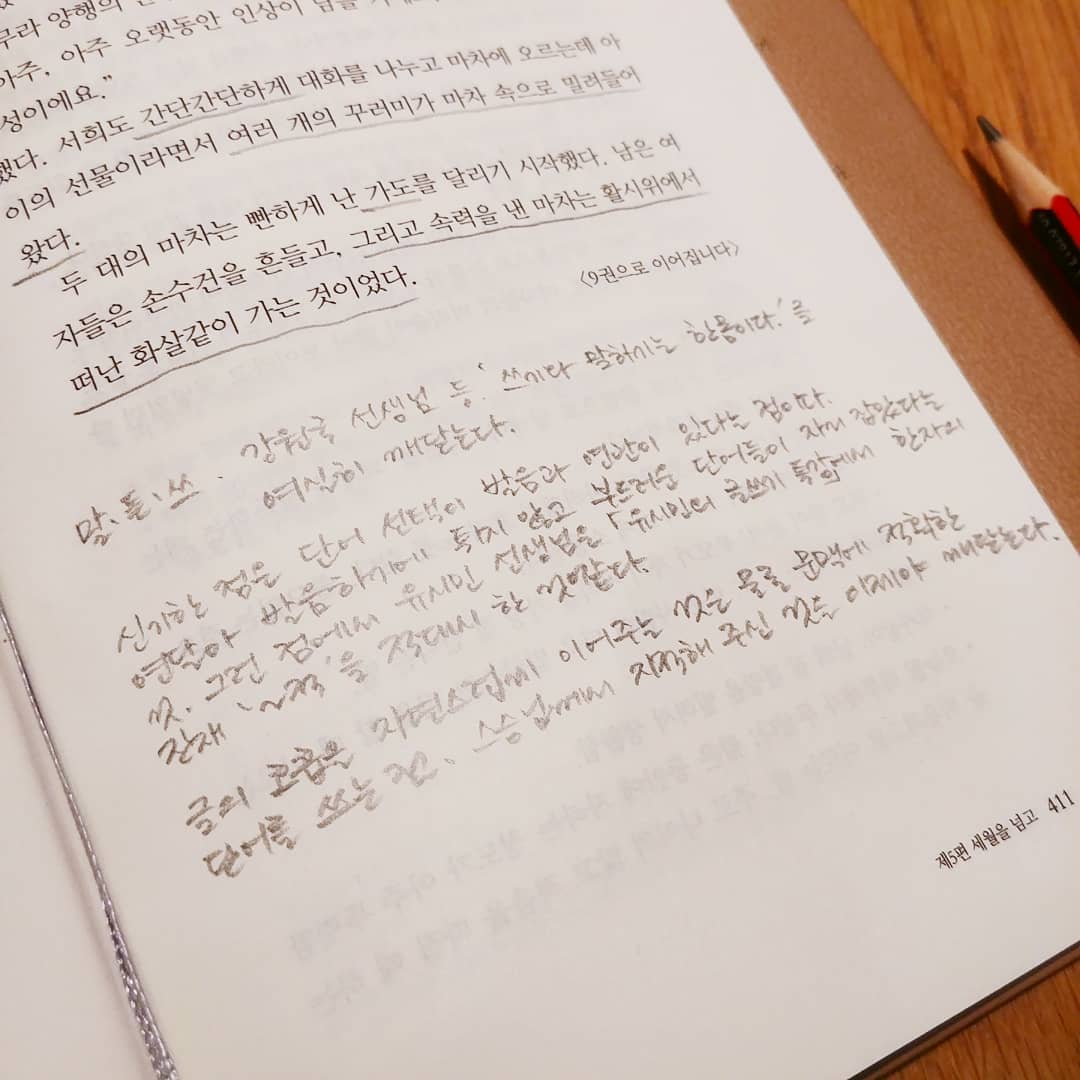 무라 양행의
아주, 아주 오랫동안 인상이 남을
성이에요.”
했다. 서희도 간단간단하게 대화를 나누고 마차에 오르는데 아
이의 선물이라면서 여러 개의 꾸러미가 마차 속으로 밀려들어
왔다.
두 대의 마차는 빤하게 난 가도를 달리기 시작했다. 남은 여
자들은 손수건을 흔들고, 그리고 속력을 낸 마차는 활시위에서
떠난 화살같이 가는 것이었다.
〈9권으로 이어집니다〉
말.돌.쓰. 강원국 선생님 등. '쓰기다 말하기는 한몸이다.'를
여실히 깨달는다.
신기한 점은 단어 선택이 발음과 연관이 있다는 점이다.
연달아 발음하기에 튀지 않고 부드러운 단어들이 자리 잡았다는
것. 그런 점에서 유시민 선생님은 「유시민의 글쓰기 특강에서 한자의
잔재 '~적'을 적대시 한 것같다.
글의 호흡은 자연스럽게 이어주는 것은 물론 문맥에 적확한
단어를 쓰는 것. 스승님께서 지적해 주신 것을 이제야 깨달는다.
제5편 세월을 넘고 411